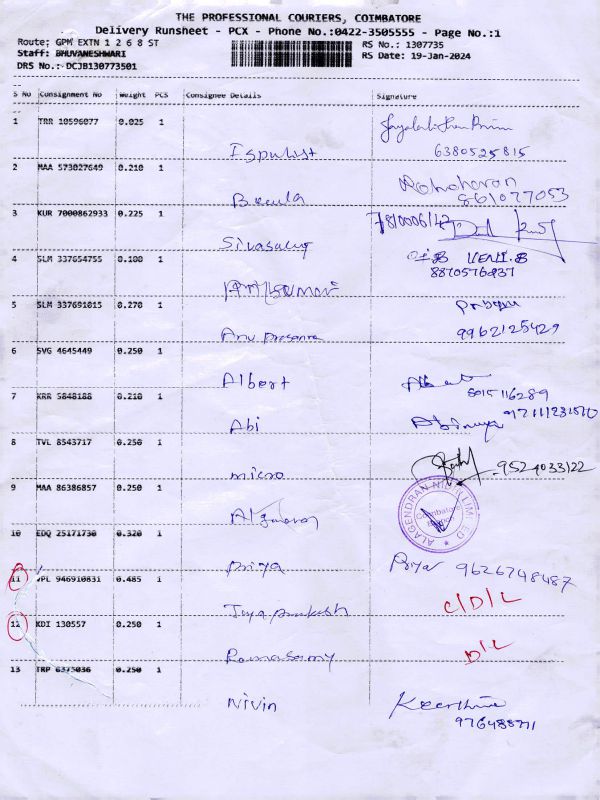 THE PROFESSIONAL COURIERS, COIMBATORE
Delivery Runsheet - PCX - Phone No.:0422-3505555 - Page No.:1
Route: GPM EXTN 1 2 6 8 ST
RS No.: 1307735
Staff: BHUVANESHWARI
RS Date: 19-Jan-2024
DRS No.: DCJB130773501
S No Consignment No Weight PCS Consignee Details Signature
1 TRR 10596077 0.025 1
Ispulist 6380525815
2 MAA 573027649 0.210 1
861077053
3 KUR 7000862933 0.225 1
4 SLM 337654755 0.100 1 VENI.B
8870576937
5 SLM 337691015 0.270 1
Anu prasanna 9962125429
6 SVG 4645449 0.250 1
Albert 8015116289
7 KRR 5848188 0.210 1
Abi Abinaya
8 TVL 8543717 0.250 1
micro 9524033122
9 MAA 86386857 0.250 1
ALAGENDRAN Coimbatore
10 EDQ 25171730 0.320 1
Priya Priya 9626748487
11 VPL 946910831 0.485 1
Jaya prakash C/D/L
12 KDI 130557 0.250 1
Ramasamy D/L
13 TRP 6375036 0.250 1
Nivin Keerthina
976488771